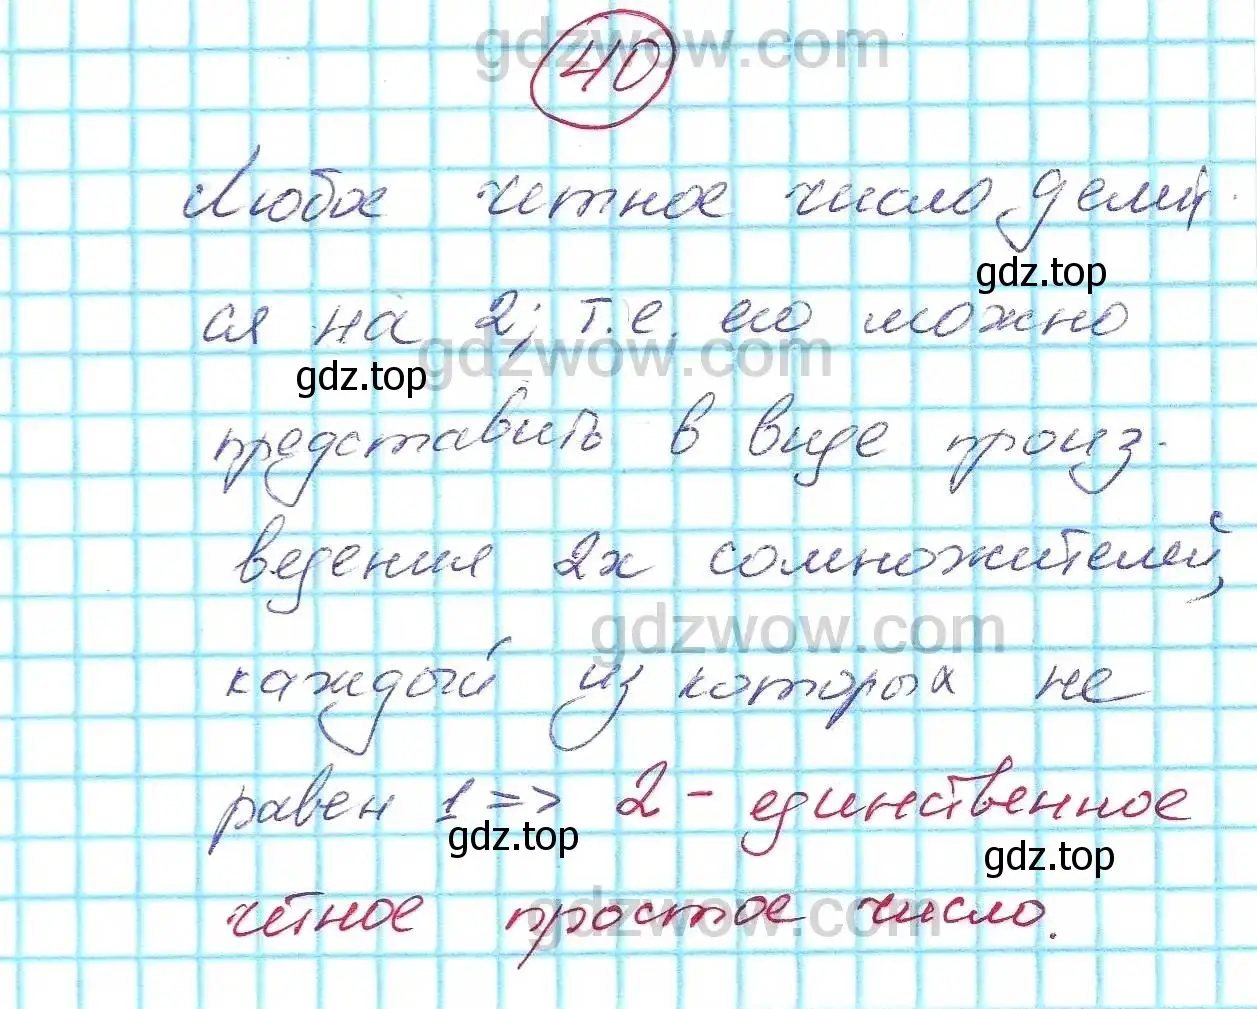 gdzwow.com
410
Любое четное число делит-
gdz.top
ся на 2; т.е. его можно
gdzwow.com
gdz.top
представить в виде произ-
ведения 2х сомножителей,
gdzwow.com
каждый из которых не
равен 1 => 2 - единственное
gdz.top
gdz.top
чётное простое число.
gdzwow.com